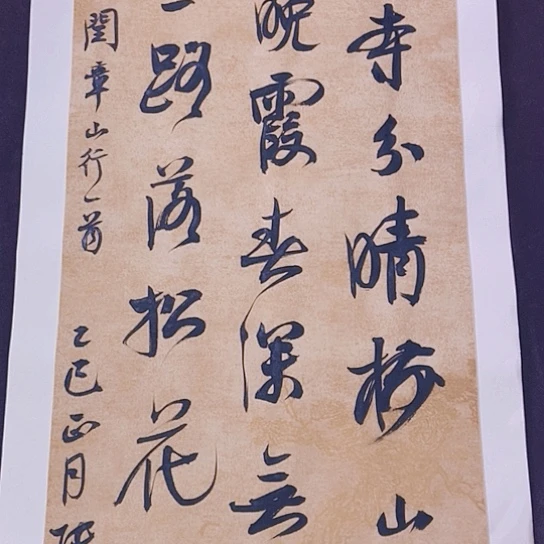 寺分晴樹山
晚霞春深無
一路落松花
閏章山行一首 乙巳正月